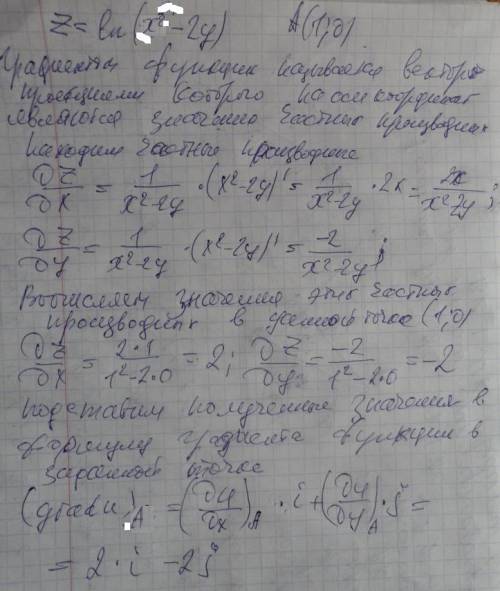 Z = ln(x² - 2y)   A(1;0)
Градиентом функции называется вектор
проекциями которого на оси координат
являются значения частных производных
находим частные производные
∂Z/∂x = 1/(x²-2y) · (x²-2y)' = 1/(x²-2y) · 2x = 2x/(x²-2y);
∂Z/∂y = 1/(x²-2y) · (x²-2y)' = -2/(x²-2y);
Вычисляем значения этих частных
производных в данной точке (1,0)
∂Z/∂x = 2·1/(1²-2·0) = 2; ∂Z/∂y = -2/(1²-2·0) = -2
подставим полученные значения в
формулу градиента функции в
заданной точке
(grad u)A = (∂u/∂x)A · i + (∂u/∂y)A · j =
= 2·i - 2j